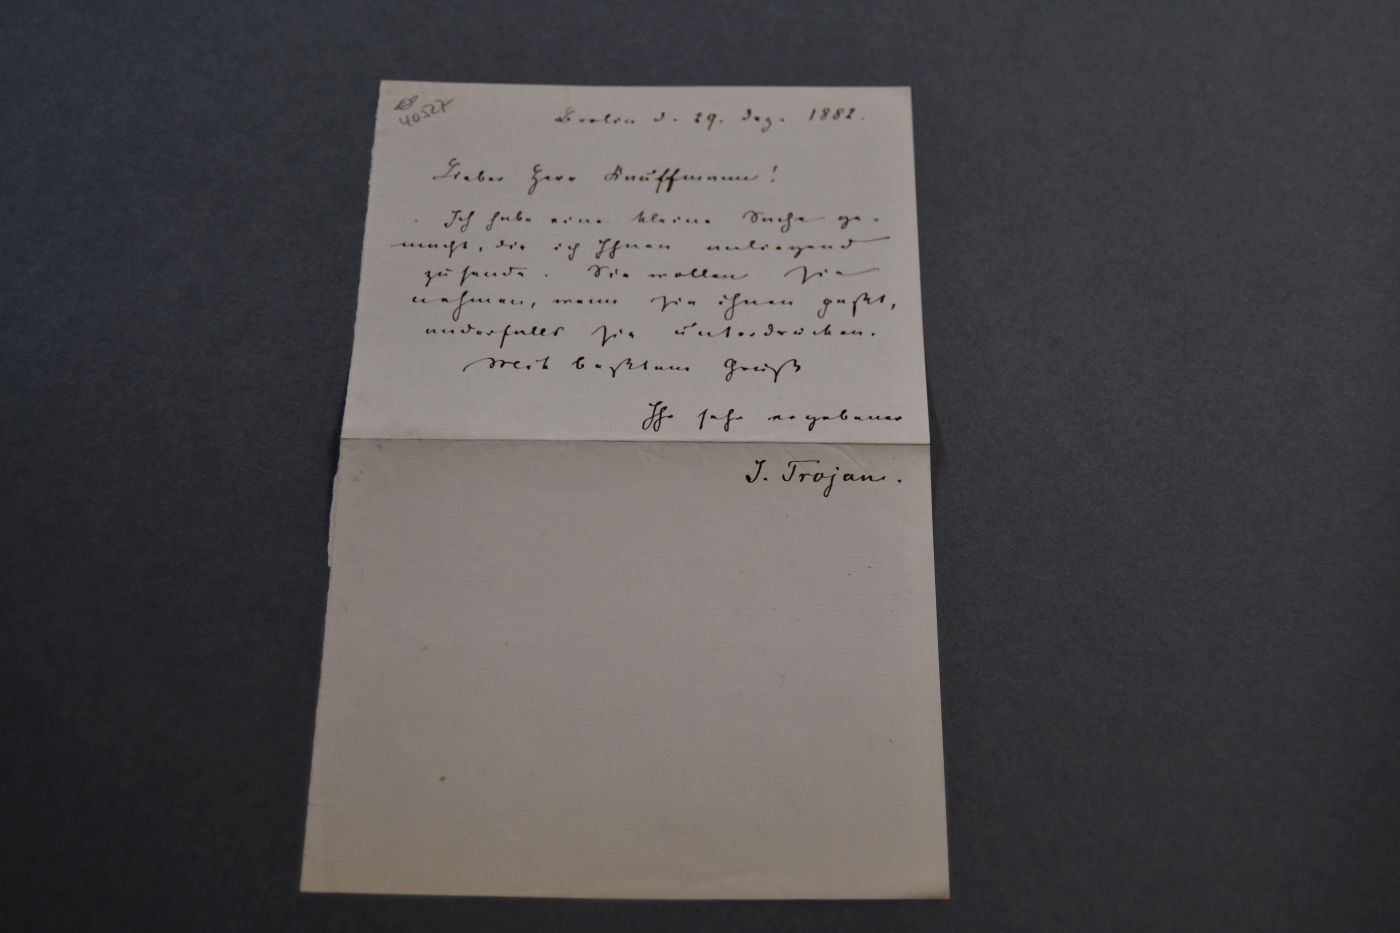 40527
Berlin d. 29. Dez. 1882.
Lieber Herr Kauffmann!
Ich habe eine kleine Sache ge-
macht, die ich Ihnen anliegend
zusende. Sie wollen sie
nehmen, wenn sie ihnen paßt,
anderfalls sie unterdrücken.
Mit beßtem Gruß
Ihr sehr ergebener
J. Trojan.